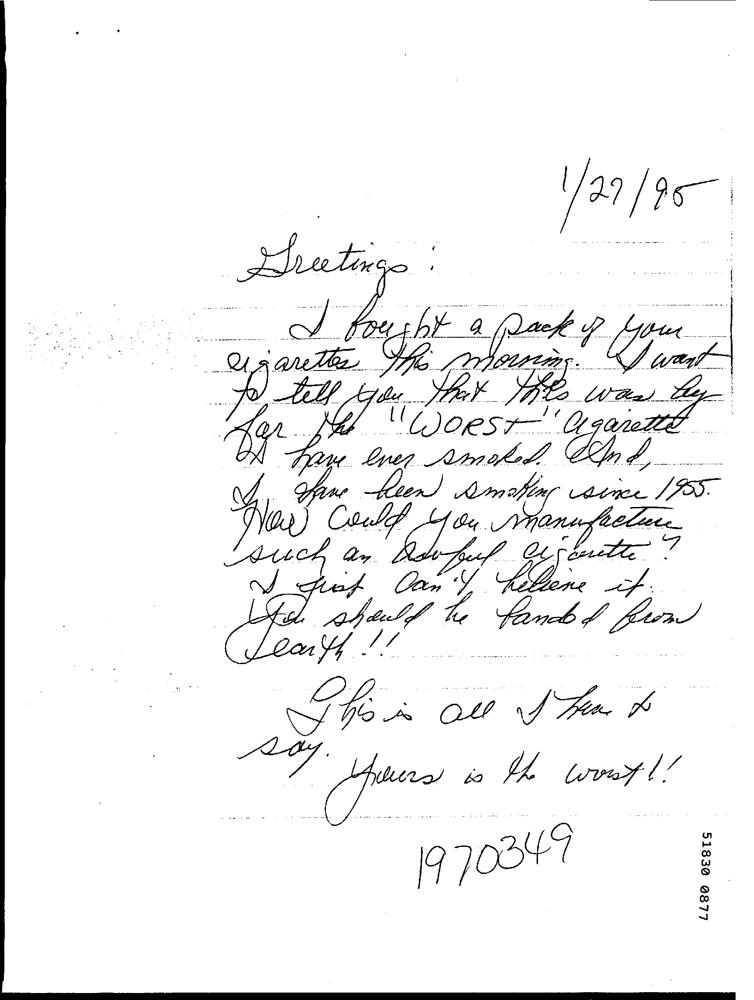 1/27/95
Greetings :
I bought a pack of your
cigarettes this morning. I want
to tell you that this was by
far the "WORST" cigarette
I have ever smoked. And,
I have been smoking since 1955.
How could you manufacture
such an awful cigarette?
I just can't believe it.
You should be banded from
earth!!
This is all I have to
say.
Yours is the worst!!
1970349
51830 0877